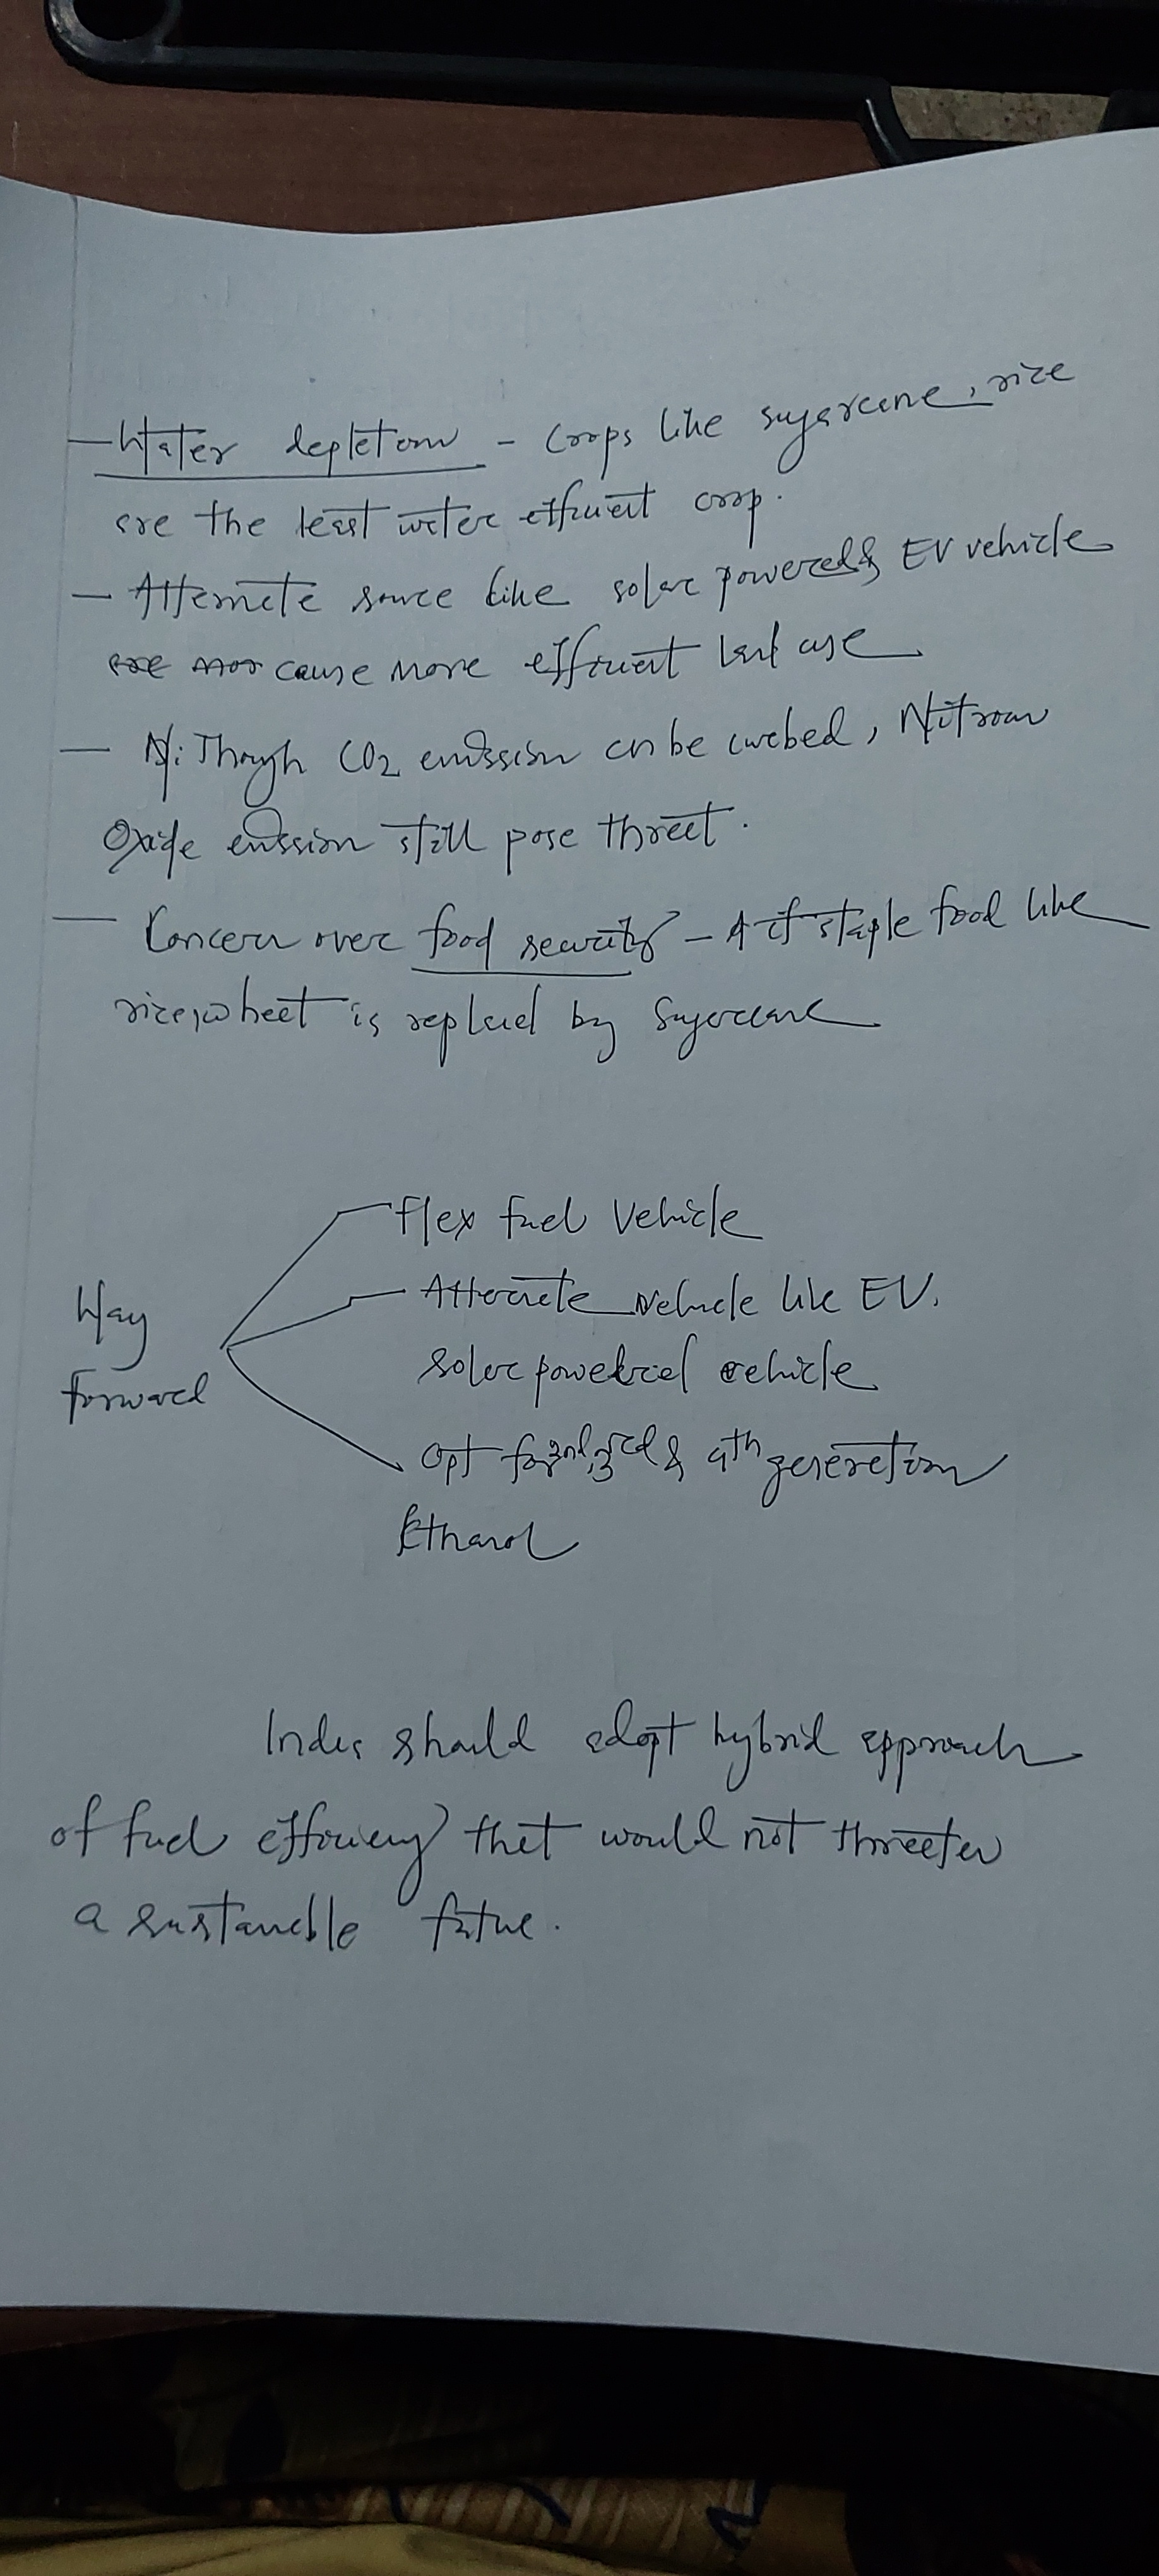 - Water depletion - Crops like sugarcane, rice
are the least water efficient crop.
- Alternate source like solar powered & EV vehicle
cause more efficient land use
- Though CO2 emission cn be curbed, Nitrous
Oxide emission still pose threat.
- Concern over food security - if staple food like
rice, wheat is replaced by Sugarcane
Way
forward
flex fuel Vehicle
Alternate vehicle like EV.
solar powered vehicle
Opt for 2nd, 3rd & 4th generation
Ethanol
India should adopt hybrid approach
of fuel efficiency that would not threaten
a sustainable future.